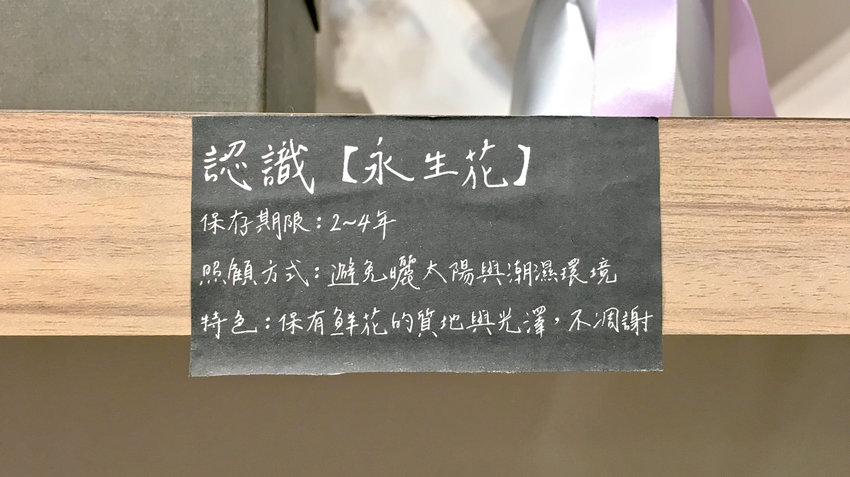 認識【永生花】
保存期限：2~4年
照顧方式：避免曬太陽與潮濕環境
特色：保有鮮花的質地與光澤，不凋謝